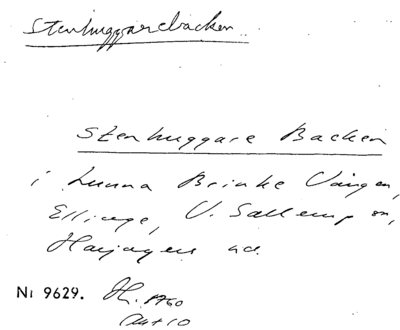 Stenhuggarebacken
Stenhuggare Backen
i Lunna Brinke Vången,
Ellinge, V. Sallerup sn,
Harjagers hd.
Nr 9629. 1960